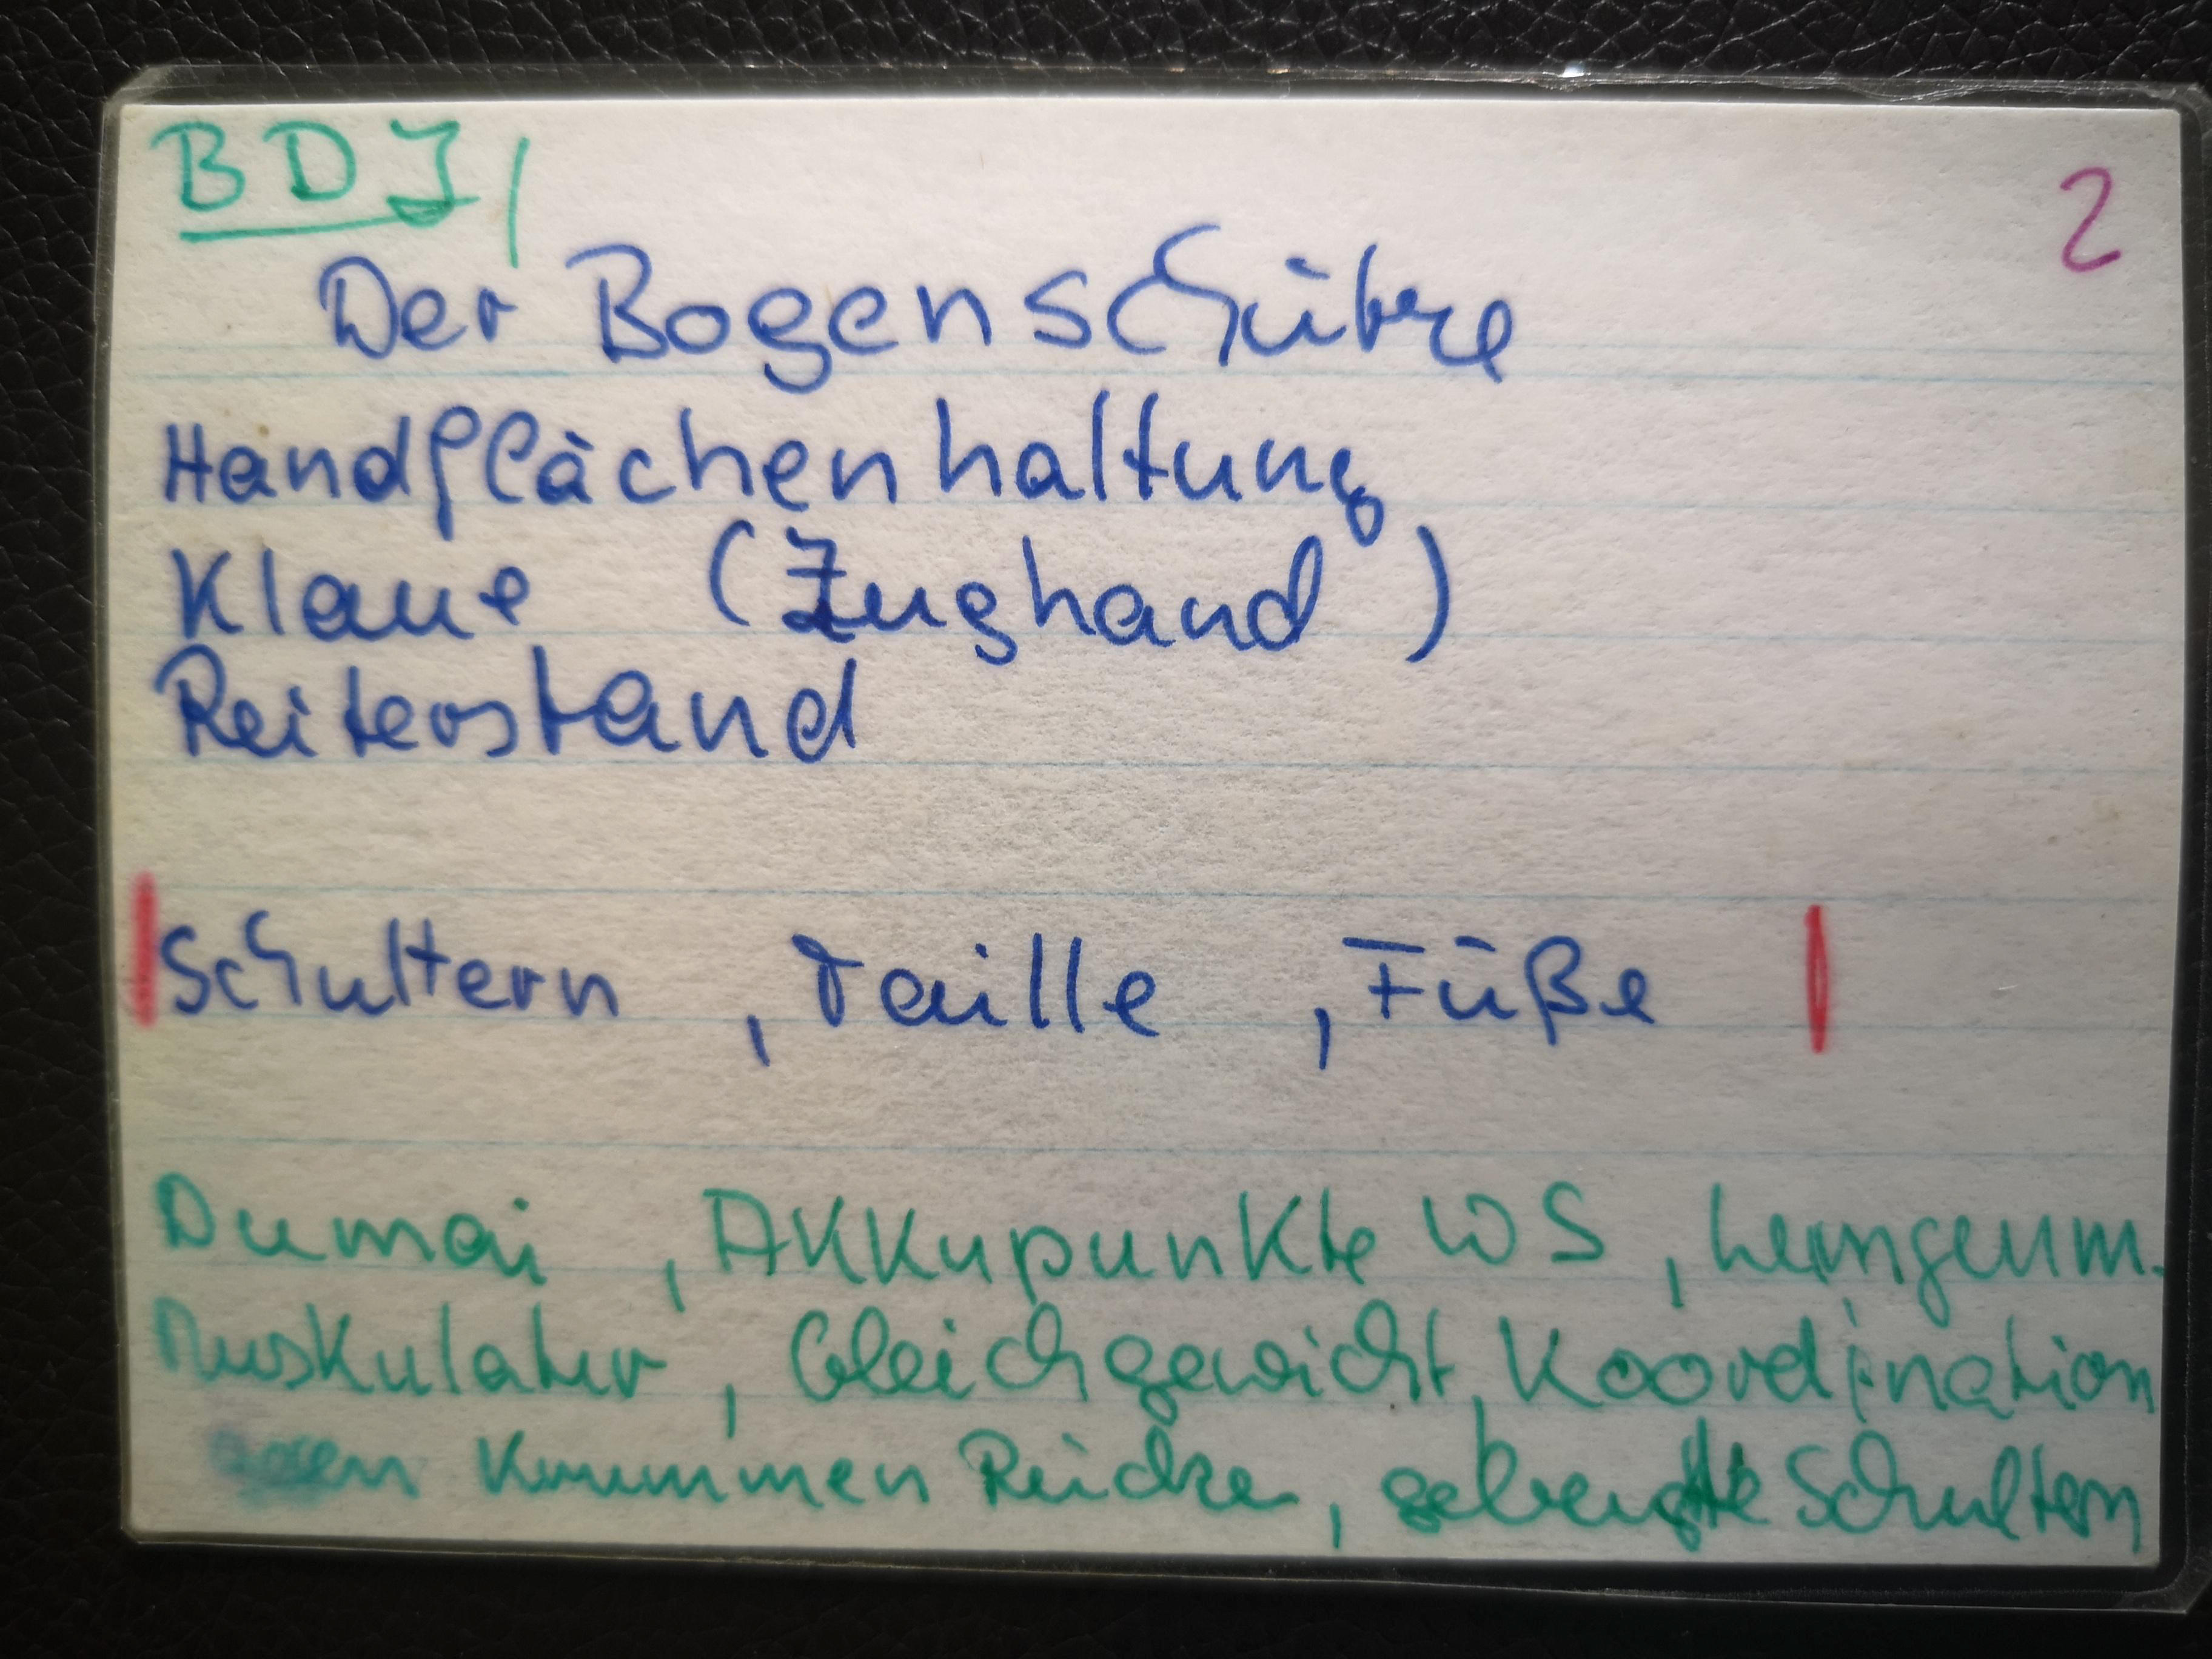 BDJ 2
Der Bogenschütze
Handflächenhaltung
Klaue (Zughand)
Reiterstand
Schultern , Taille , Füße
Dumai , Akkupunkte WS ,
Muskulatur , Gleichgewicht, Koordination
krummen Rücken , gebeugte Schultern